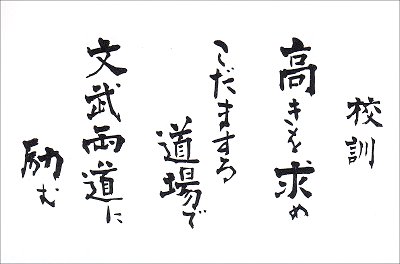 校訓
高きを求め
こだまする
道場で
文武両道に
励む